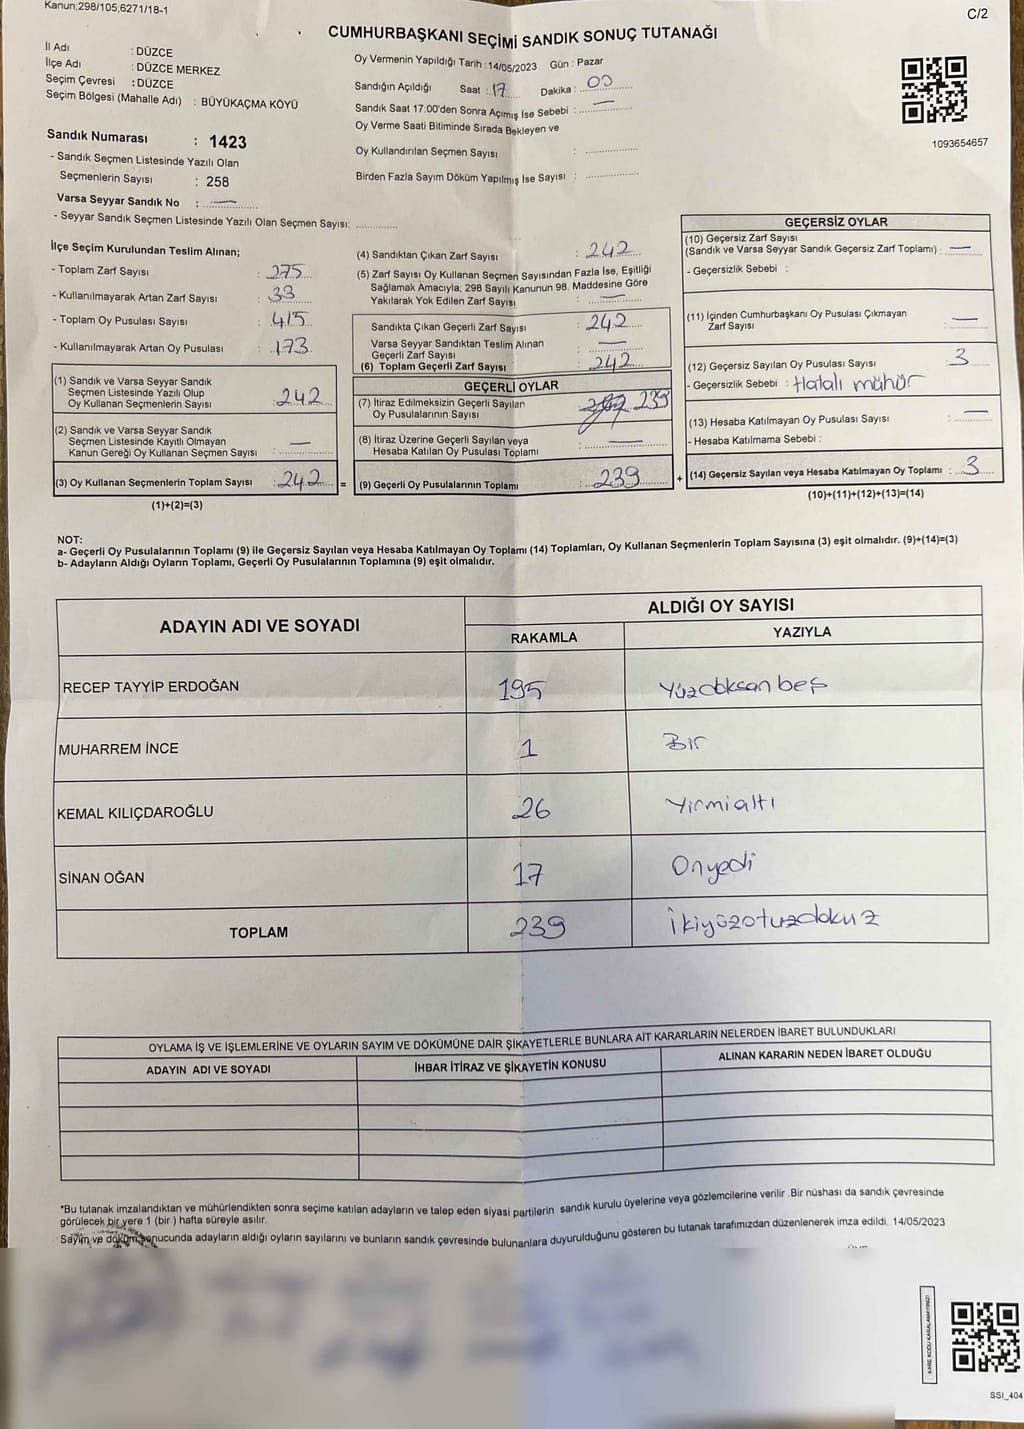 Kanun;298/105;6271/18-1
C/2
CUMHURBAŞKANI SEÇİMİ SANDIK SONUÇ TUTANAĞI
İl Adı : DÜZCE
İlçe Adı : DÜZCE MERKEZ
Seçim Çevresi : DÜZCE
Seçim Bölgesi (Mahalle Adı) : BÜYÜKAÇMA KÖYÜ
Oy Vermenin Yapıldığı Tarih :14/05/2023 Gün : Pazar
Sandığın Açıldığı Saat : 17 Dakika : 00
Sandık Saat 17.00'den Sonra Açımış İse Sebebi : —
Oy Verme Saati Bitiminde Sırada Bekleyen ve
Oy Kullandırılan Seçmen Sayısı :
Birden Fazla Sayım Döküm Yapılmış İse Sayısı :
1093654657
Sandık Numarası : 1423
- Sandık Seçmen Listesinde Yazılı Olan
Seçmenlerin Sayısı : 258
Varsa Seyyar Sandık No : —
- Seyyar Sandık Seçmen Listesinde Yazılı Olan Seçmen Sayısı:
İlçe Seçim Kurulundan Teslim Alınan;
- Toplam Zarf Sayısı : 275
- Kullanılmayarak Artan Zarf Sayısı : 33
- Toplam Oy Pusulası Sayısı : 415
- Kullanılmayarak Artan Oy Pusulası : 173
(1) Sandık ve Varsa Seyyar Sandık
Seçmen Listesinde Yazılı Olup
Oy Kullanan Seçmenlerin Sayısı : 242
(2) Sandık ve Varsa Seyyar Sandık
Seçmen Listesinde Kayıtlı Olmayan
Kanun Gereği Oy Kullanan Seçmen Sayısı : —
(3) Oy Kullanan Seçmenlerin Toplam Sayısı : 242 =
(1)+(2)=(3)
(4) Sandıktan Çıkan Zarf Sayısı : 242
(5) Zarf Sayısı Oy Kullanan Seçmen Sayısından Fazla İse, Eşitliği
Sağlamak Amacıyla; 298 Sayılı Kanunun 98. Maddesine Göre
Yakılarak Yok Edilen Zarf Sayısı : —
Sandıkta Çıkan Geçerli Zarf Sayısı : 242
Varsa Seyyar Sandıktan Teslim Alınan
Geçerli Zarf Sayısı : —
(6) Toplam Geçerli Zarf Sayısı : 242
GEÇERLİ OYLAR
(7) İtiraz Edilmeksizin Geçerli Sayılan
Oy Pusulalarının Sayısı 239
(8) İtiraz Üzerine Geçerli Sayılan veya
Hesaba Katılan Oy Pusulası Toplamı : —
(9) Geçerli Oy Pusulalarının Toplamı : 239 +
GEÇERSİZ OYLAR
(10) Geçersiz Zarf Sayısı
(Sandık ve Varsa Seyyar Sandık Geçersiz Zarf Toplamı) : —
- Geçersizlik Sebebi :
(11) İçinden Cumhurbaşkanı Oy Pusulası Çıkmayan
Zarf Sayısı : —
(12) Geçersiz Sayılan Oy Pusulası Sayısı : 3
- Geçersizlik Sebebi : Hatalı mühür
(13) Hesaba Katılmayan Oy Pusulası Sayısı : —
- Hesaba Katılmama Sebebi :
(14) Geçersiz Sayılan veya Hesaba Katılmayan Oy Toplamı : 3
(10)+(11)+(12)+(13)=(14)
NOT:
a- Geçerli Oy Pusulalarının Toplamı (9) ile Geçersiz Sayılan veya Hesaba Katılmayan Oy Toplamı (14) Toplamları, Oy Kullanan Seçmenlerin Toplam Sayısına (3) eşit olmalıdır. (9)+(14)=(3)
b- Adayların Aldığı Oyların Toplamı, Geçerli Oy Pusulalarının Toplamına (9) eşit olmalıdır.
ADAYIN ADI VE SOYADI
ALDIĞI OY SAYISI
RAKAMLA YAZIYLA
RECEP TAYYİP ERDOĞAN 195 Yüzdoksanbeş
MUHARREM İNCE 1 Bir
KEMAL KILIÇDAROĞLU 26 Yirmialtı
SİNAN OĞAN 17 Onyedi
TOPLAM 239 İkiyüzotuzdokuz
OYLAMA İŞ VE İŞLEMLERİNE VE OYLARIN SAYIM VE DÖKÜMÜNE DAİR ŞİKAYETLERLE BUNLARA AİT KARARLARIN NELERDEN İBARET BULUNDUKLARI
ADAYIN ADI VE SOYADI İHBAR İTİRAZ VE ŞİKAYETİN KONUSU ALINAN KARARIN NEDEN İBARET OLDUĞU
*Bu tutanak imzalandıktan ve mühürlendikten sonra seçime katılan adayların ve talep eden siyasi partilerin sandık kurulu üyelerine veya gözlemcilerine verilir .Bir nüshası da sandık çevresinde
görülecek bir yere 1 (bir ) hafta süreyle asılır.
Sayım ve döküm sonucunda adayların aldığı oyların sayılarını ve bunların sandık çevresinde bulunanlara duyurulduğunu gösteren bu tutanak tarafımızdan düzenlenerek imza edildi. 14/05/2023
KARE KODU KARALAMAYINIZ!
SSI_404